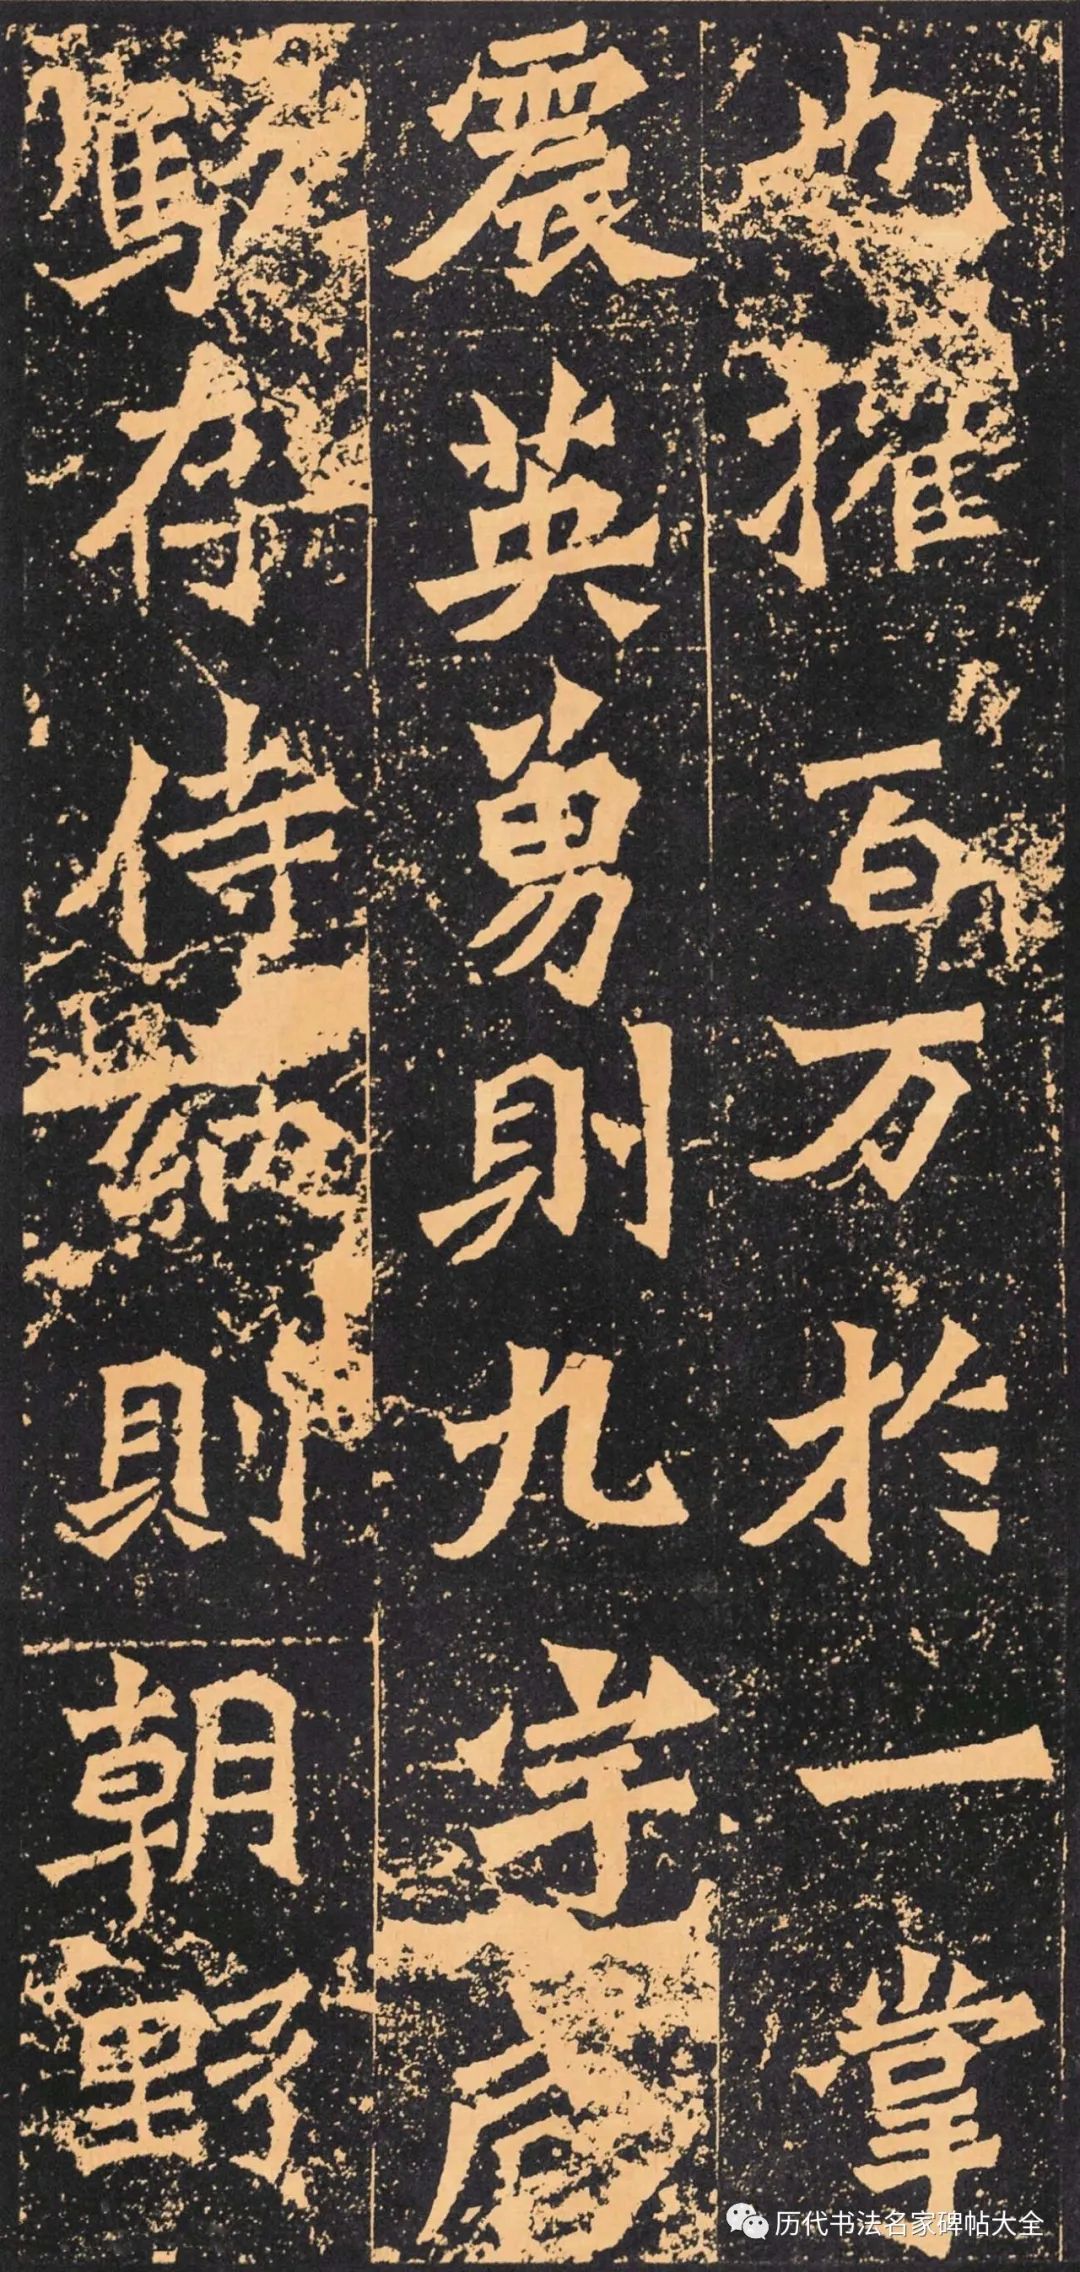 也摧百万於一掌
震英勇則九宇咸
駭存侍納則朝野
历代书法名家碑帖大全